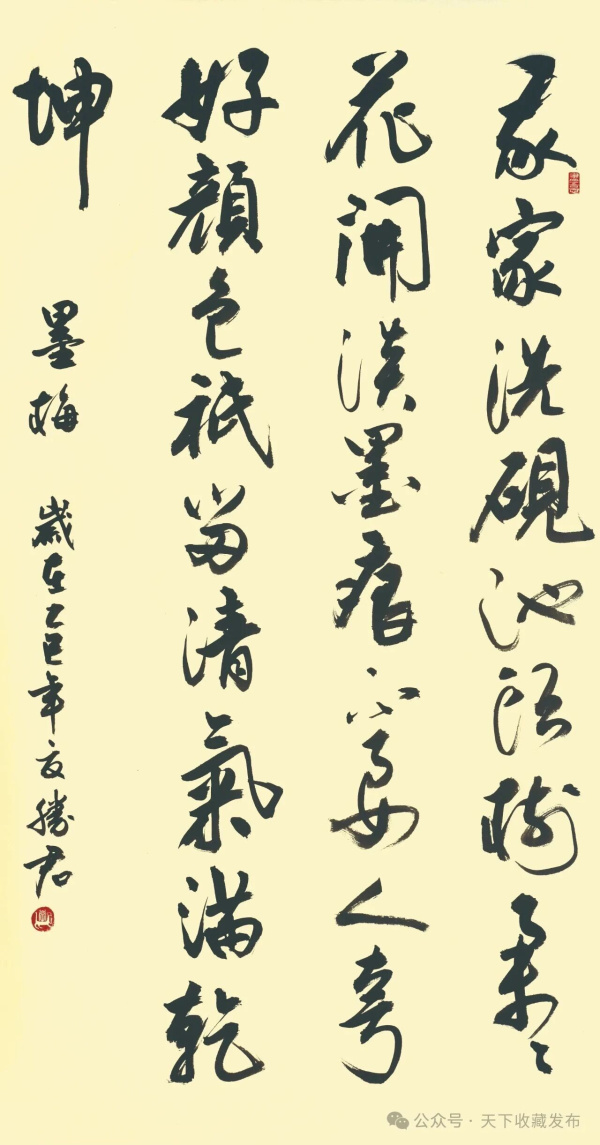 我家洗硯池頭樹朵々
花開淡墨痕不要人夸
好顏色祇留清氣滿乾
坤 墨梅 歲在乙巳年夏勝君
公众号·天下收藏发布